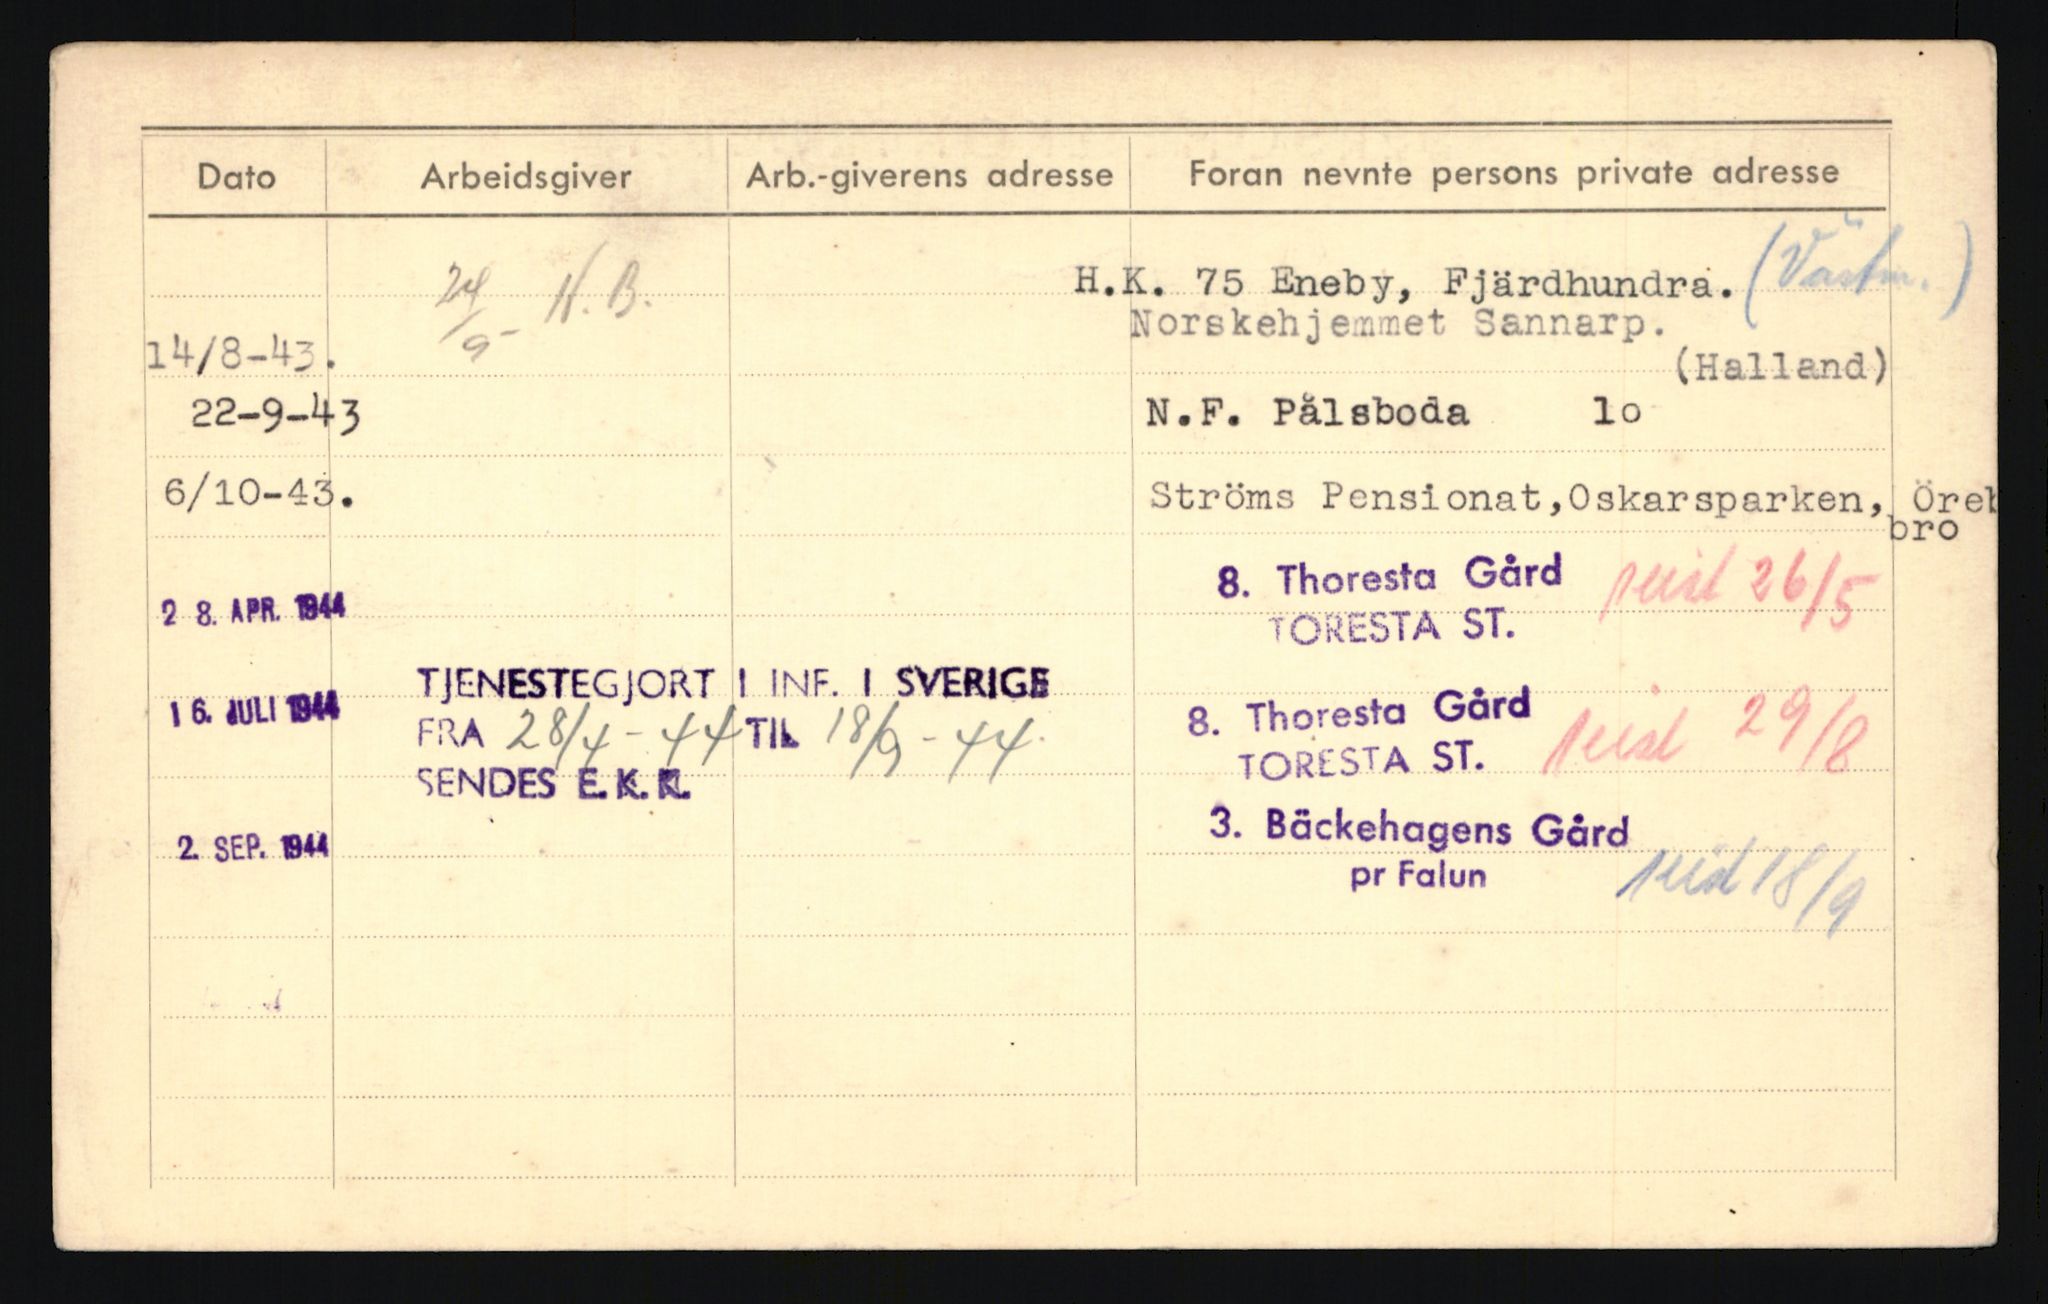 Dato Arbeidsgiver Arb.-giverens adresse Foran nevnte persons private adresse
24/9- N.B. H.K. 75 Eneby, Fjärdhundra. (Västm.)
Norskehjemmet Sannarp.
14/8-43. (Halland)
22-9-43 N.F. Pålsboda 1o
6/10-43. Ströms Pensionat,Oskarsparken, Öreb
bro
28. APR. 1944 8. Thoresta Gård reist 26/5
TORESTA ST.
16. JULI 1944 TJENESTEGJORT I INF. I SVERIGE 8. Thoresta Gård reist 29/8
FRA 28/4-44 TIL 18/9-44 TORESTA ST.
SENDES E.K.K.
2. SEP. 1944 3. Bäckehagens Gård
pr Falun reist 18/9